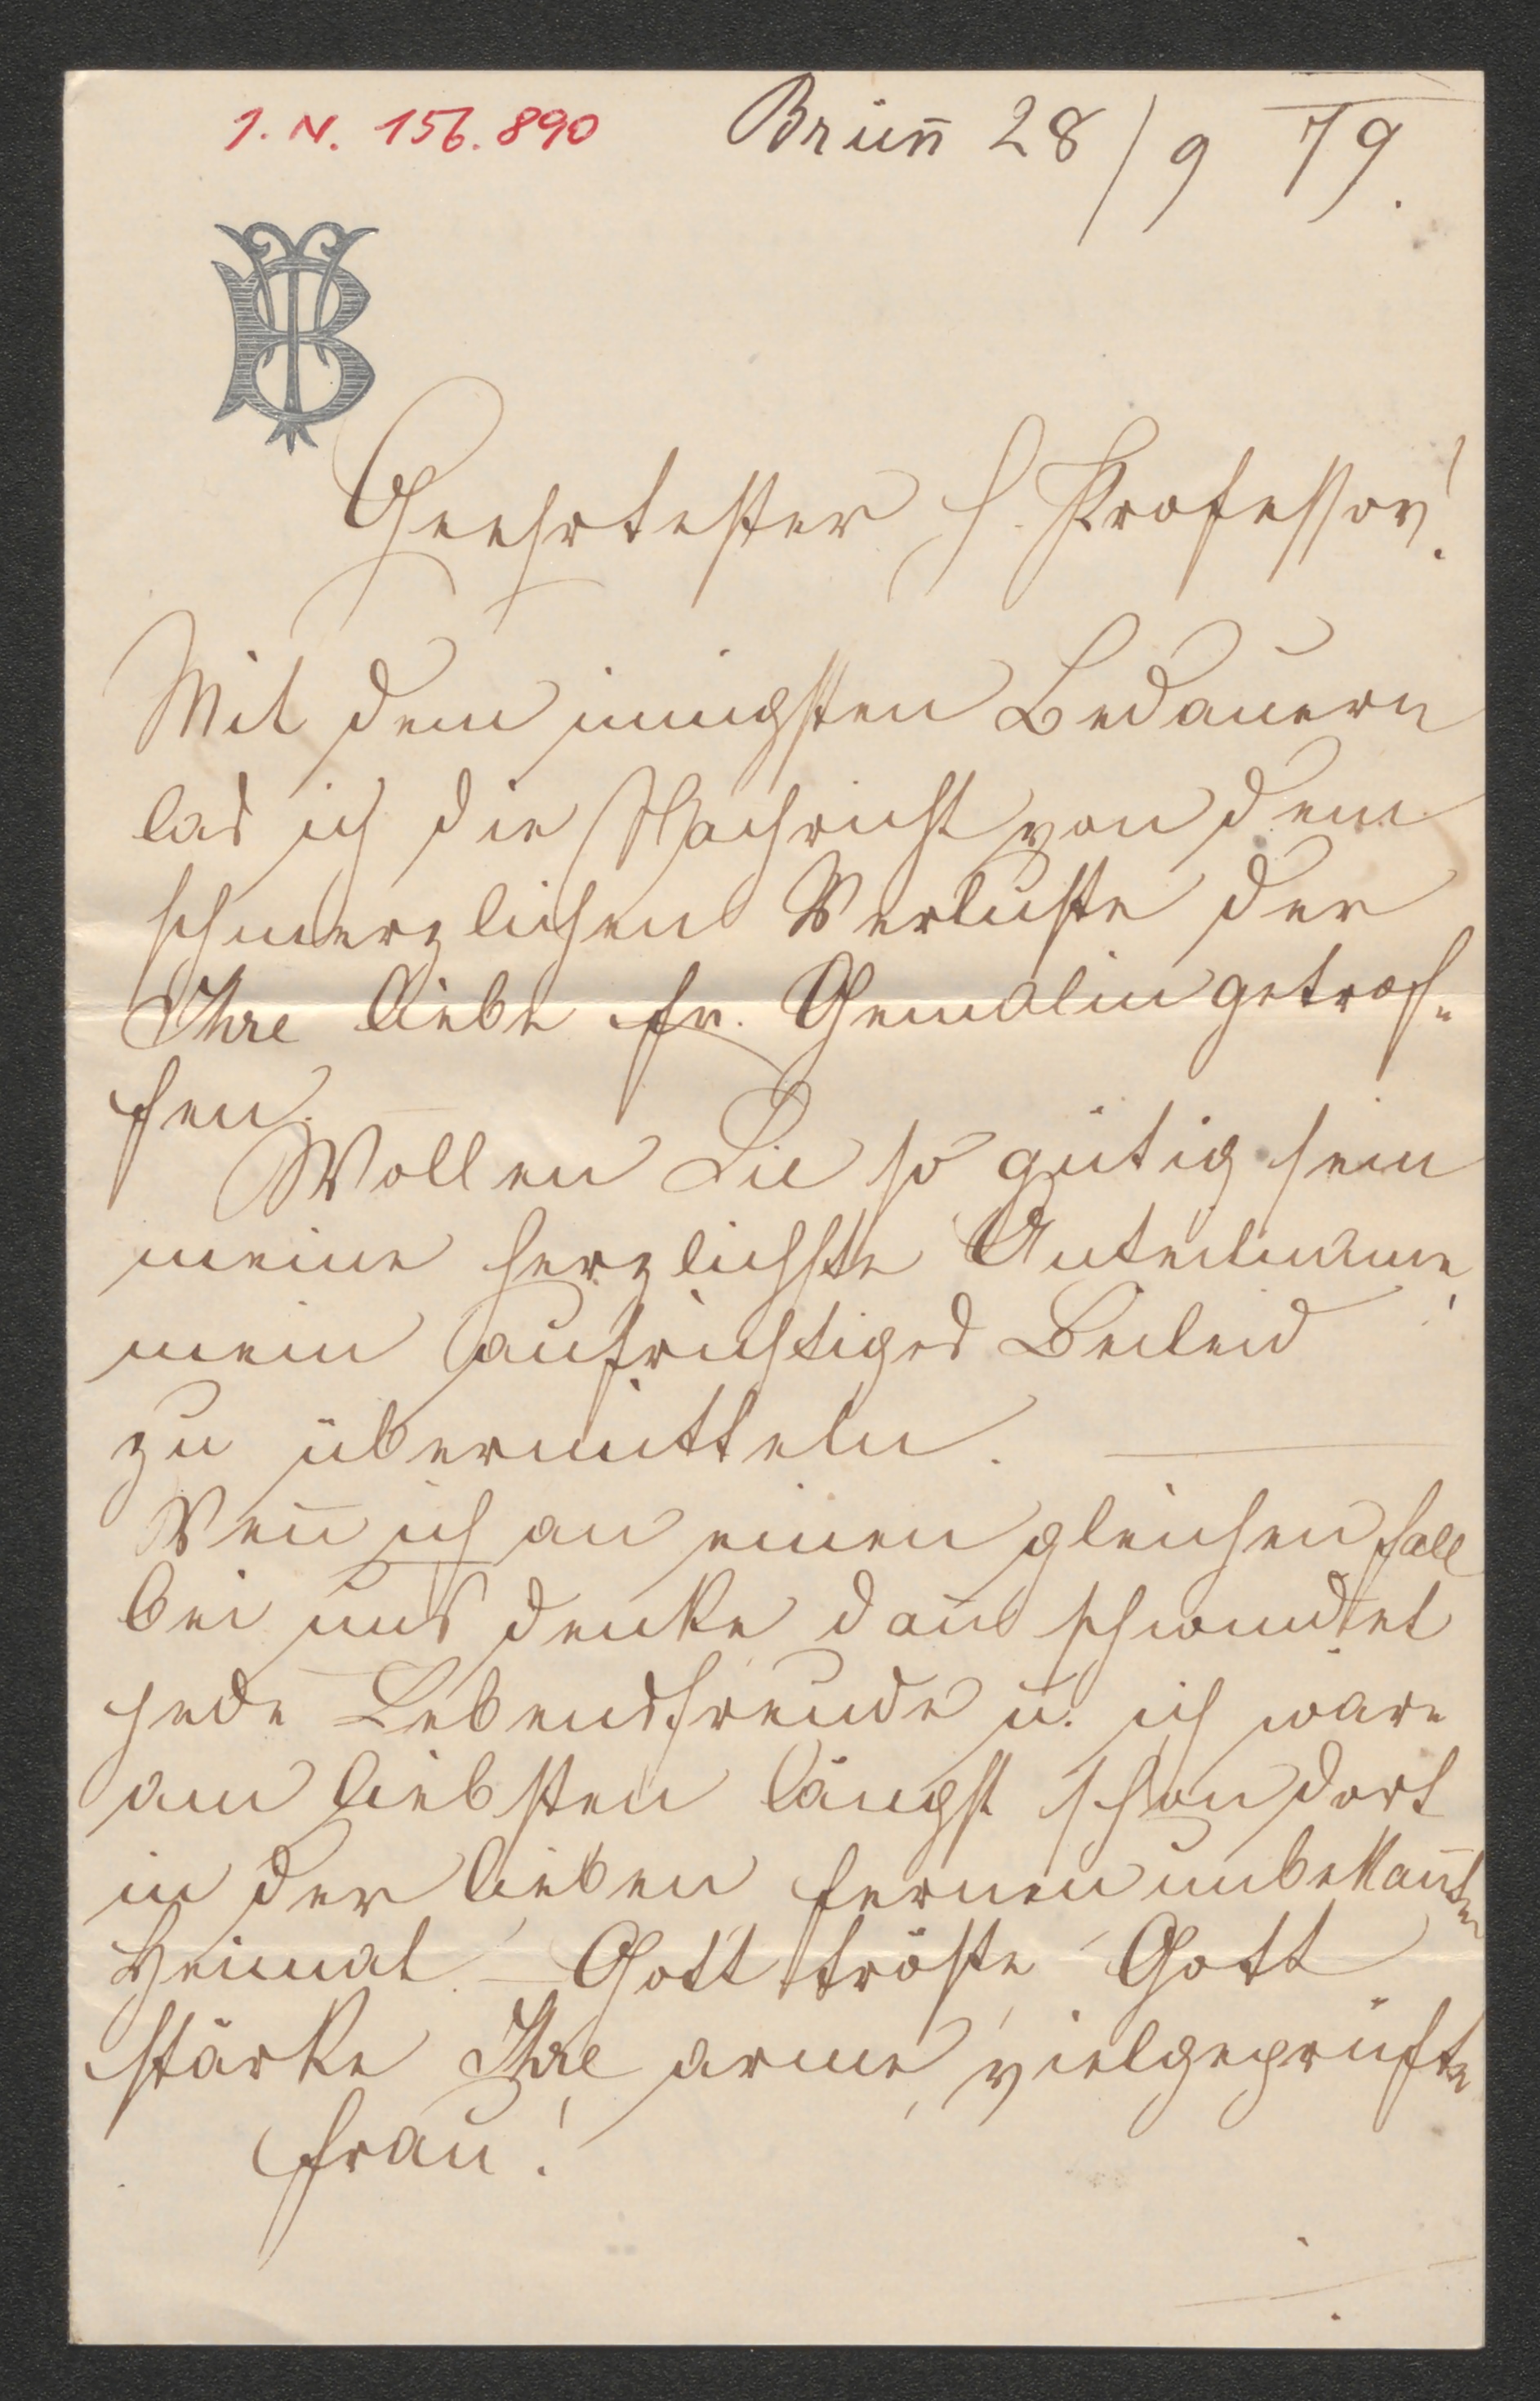 I. N. 156.890
Brün̄ 28/9 79.
Geehrtester H. Professor!
Mit dem innigsten Bedauern
las ich die Nachricht von dem
schmerzlichen Verluste der
Ihre liebe Fr. Gemalin getrof-
fen.
Wollen Sie so gütig sein
meine herzlichste Anteilname,
mein aufrichtiges Beileid
zu übermitteln.
Wen̄ ich an einen gleichen Fall
bei uns denke dan̄ schwindet
jede Lebensfreude u. ich wäre
am liebsten längst schon dort
in der lieben fernen unbekan̄ten
Heimat. – Gott tröste, Gott
stärke Ihre arme, vielgeprüfte
Frau!